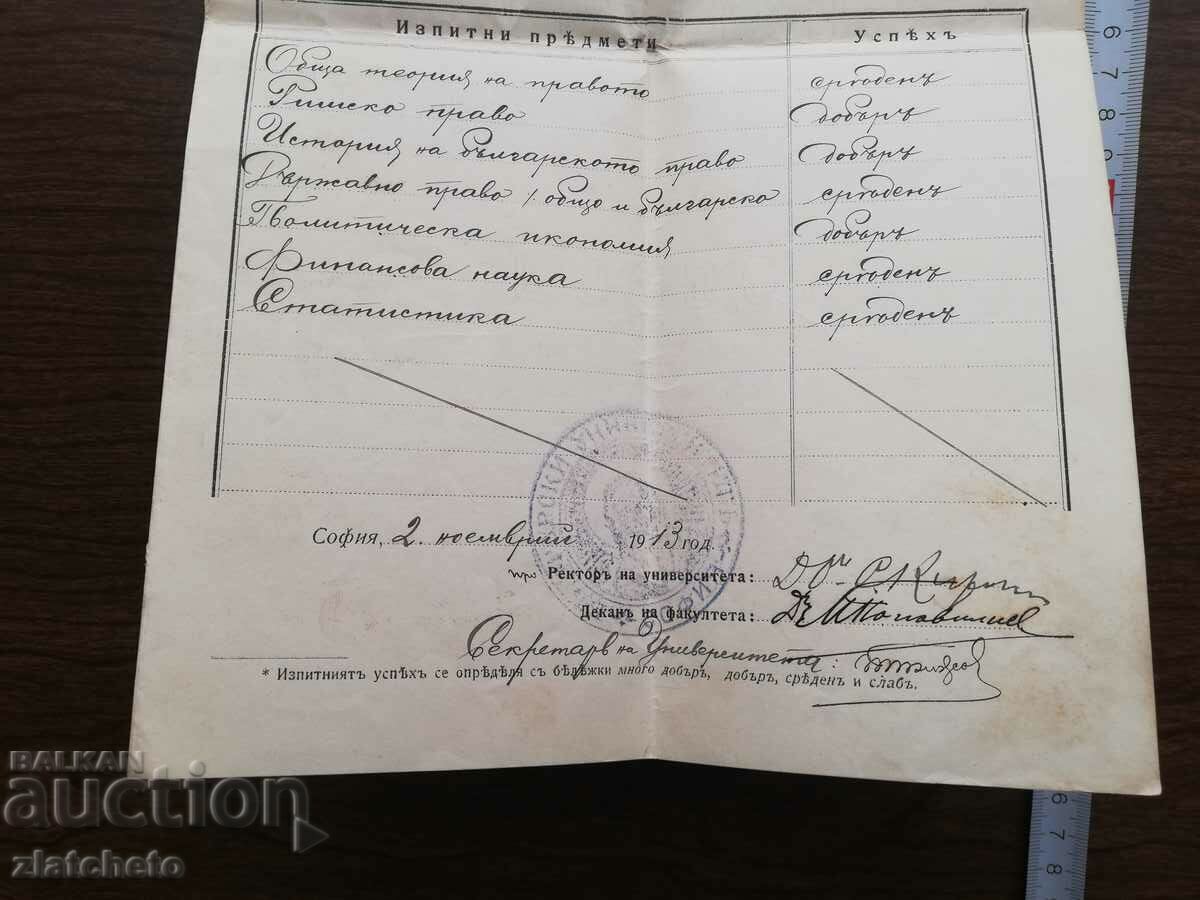 Изпитни прѣдмети Успѣхъ
Обща теория на правото срѣденъ
Римско право добъръ
История на българското право добъръ
Държавно право /: общо и българско срѣденъ
Политическа икономия добъръ
Финансова наука срѣденъ
Статистика срѣденъ
София, 2. ноемврий 1913 год.
Ректоръ на университета: Д-ръ С.
Деканъ на факултета: Д-ръ
Секретарь на Университета:
* Изпитниятъ успѣхъ се опрѣдѣля съ бѣлѣжки много добъръ, добъръ, срѣденъ и слабъ.
BALKAN
auction
zlatcheto
6
7
8
6
7
8